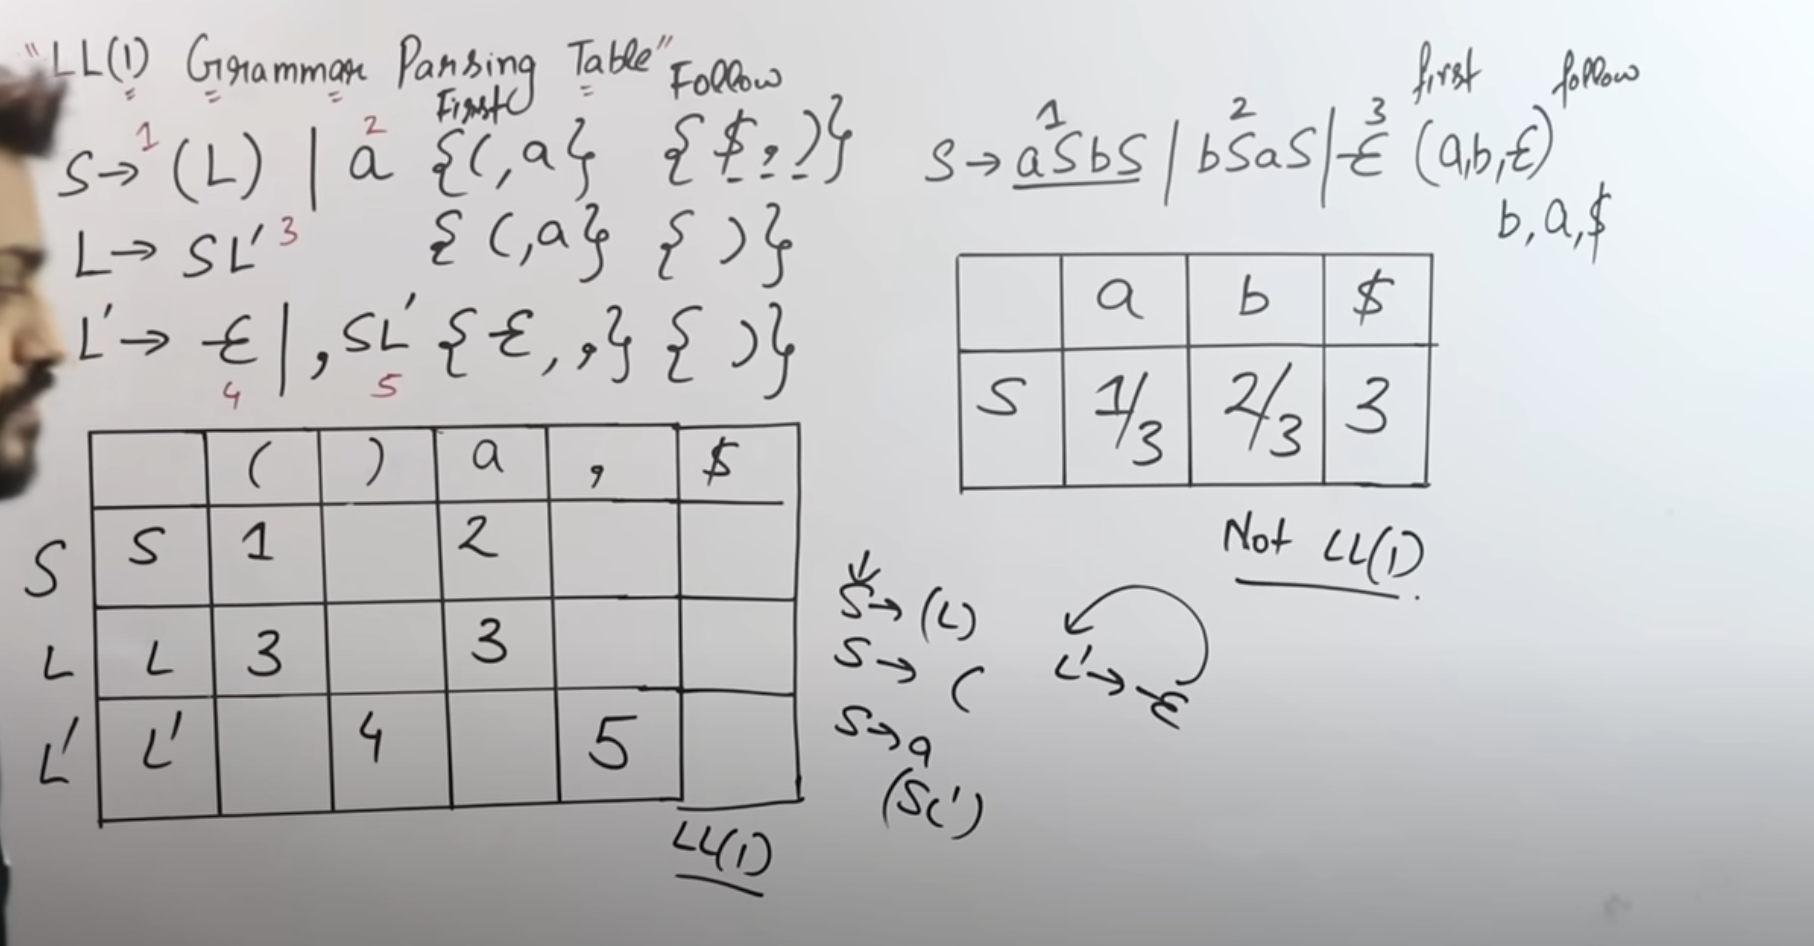 "LL(1) Grammar Parsing Table"
First Follow
S → (L) | a {(,a} {$,,)}
1 2
L → SL' 3 {(,a} { )}
L' → Ɛ | , SL' {Ɛ, ,} { )}
4 5
( ) a , $
S S 1 2
L L 3 3
L' L' 4 5
LL(1)
S → (L)
S → (
S → a
(SL')
L' → Ɛ
first follow
1 2 3
S → aSbS | bSaS | Ɛ (a,b,Ɛ)
b,a,$
a b $
S 1/3 2/3 3
Not LL(1)